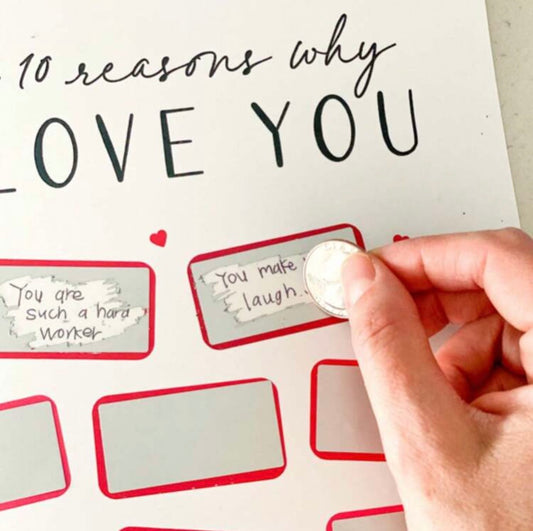 10 reasons why
LOVE YOU
You are
such a hard
worker
You make
laugh.